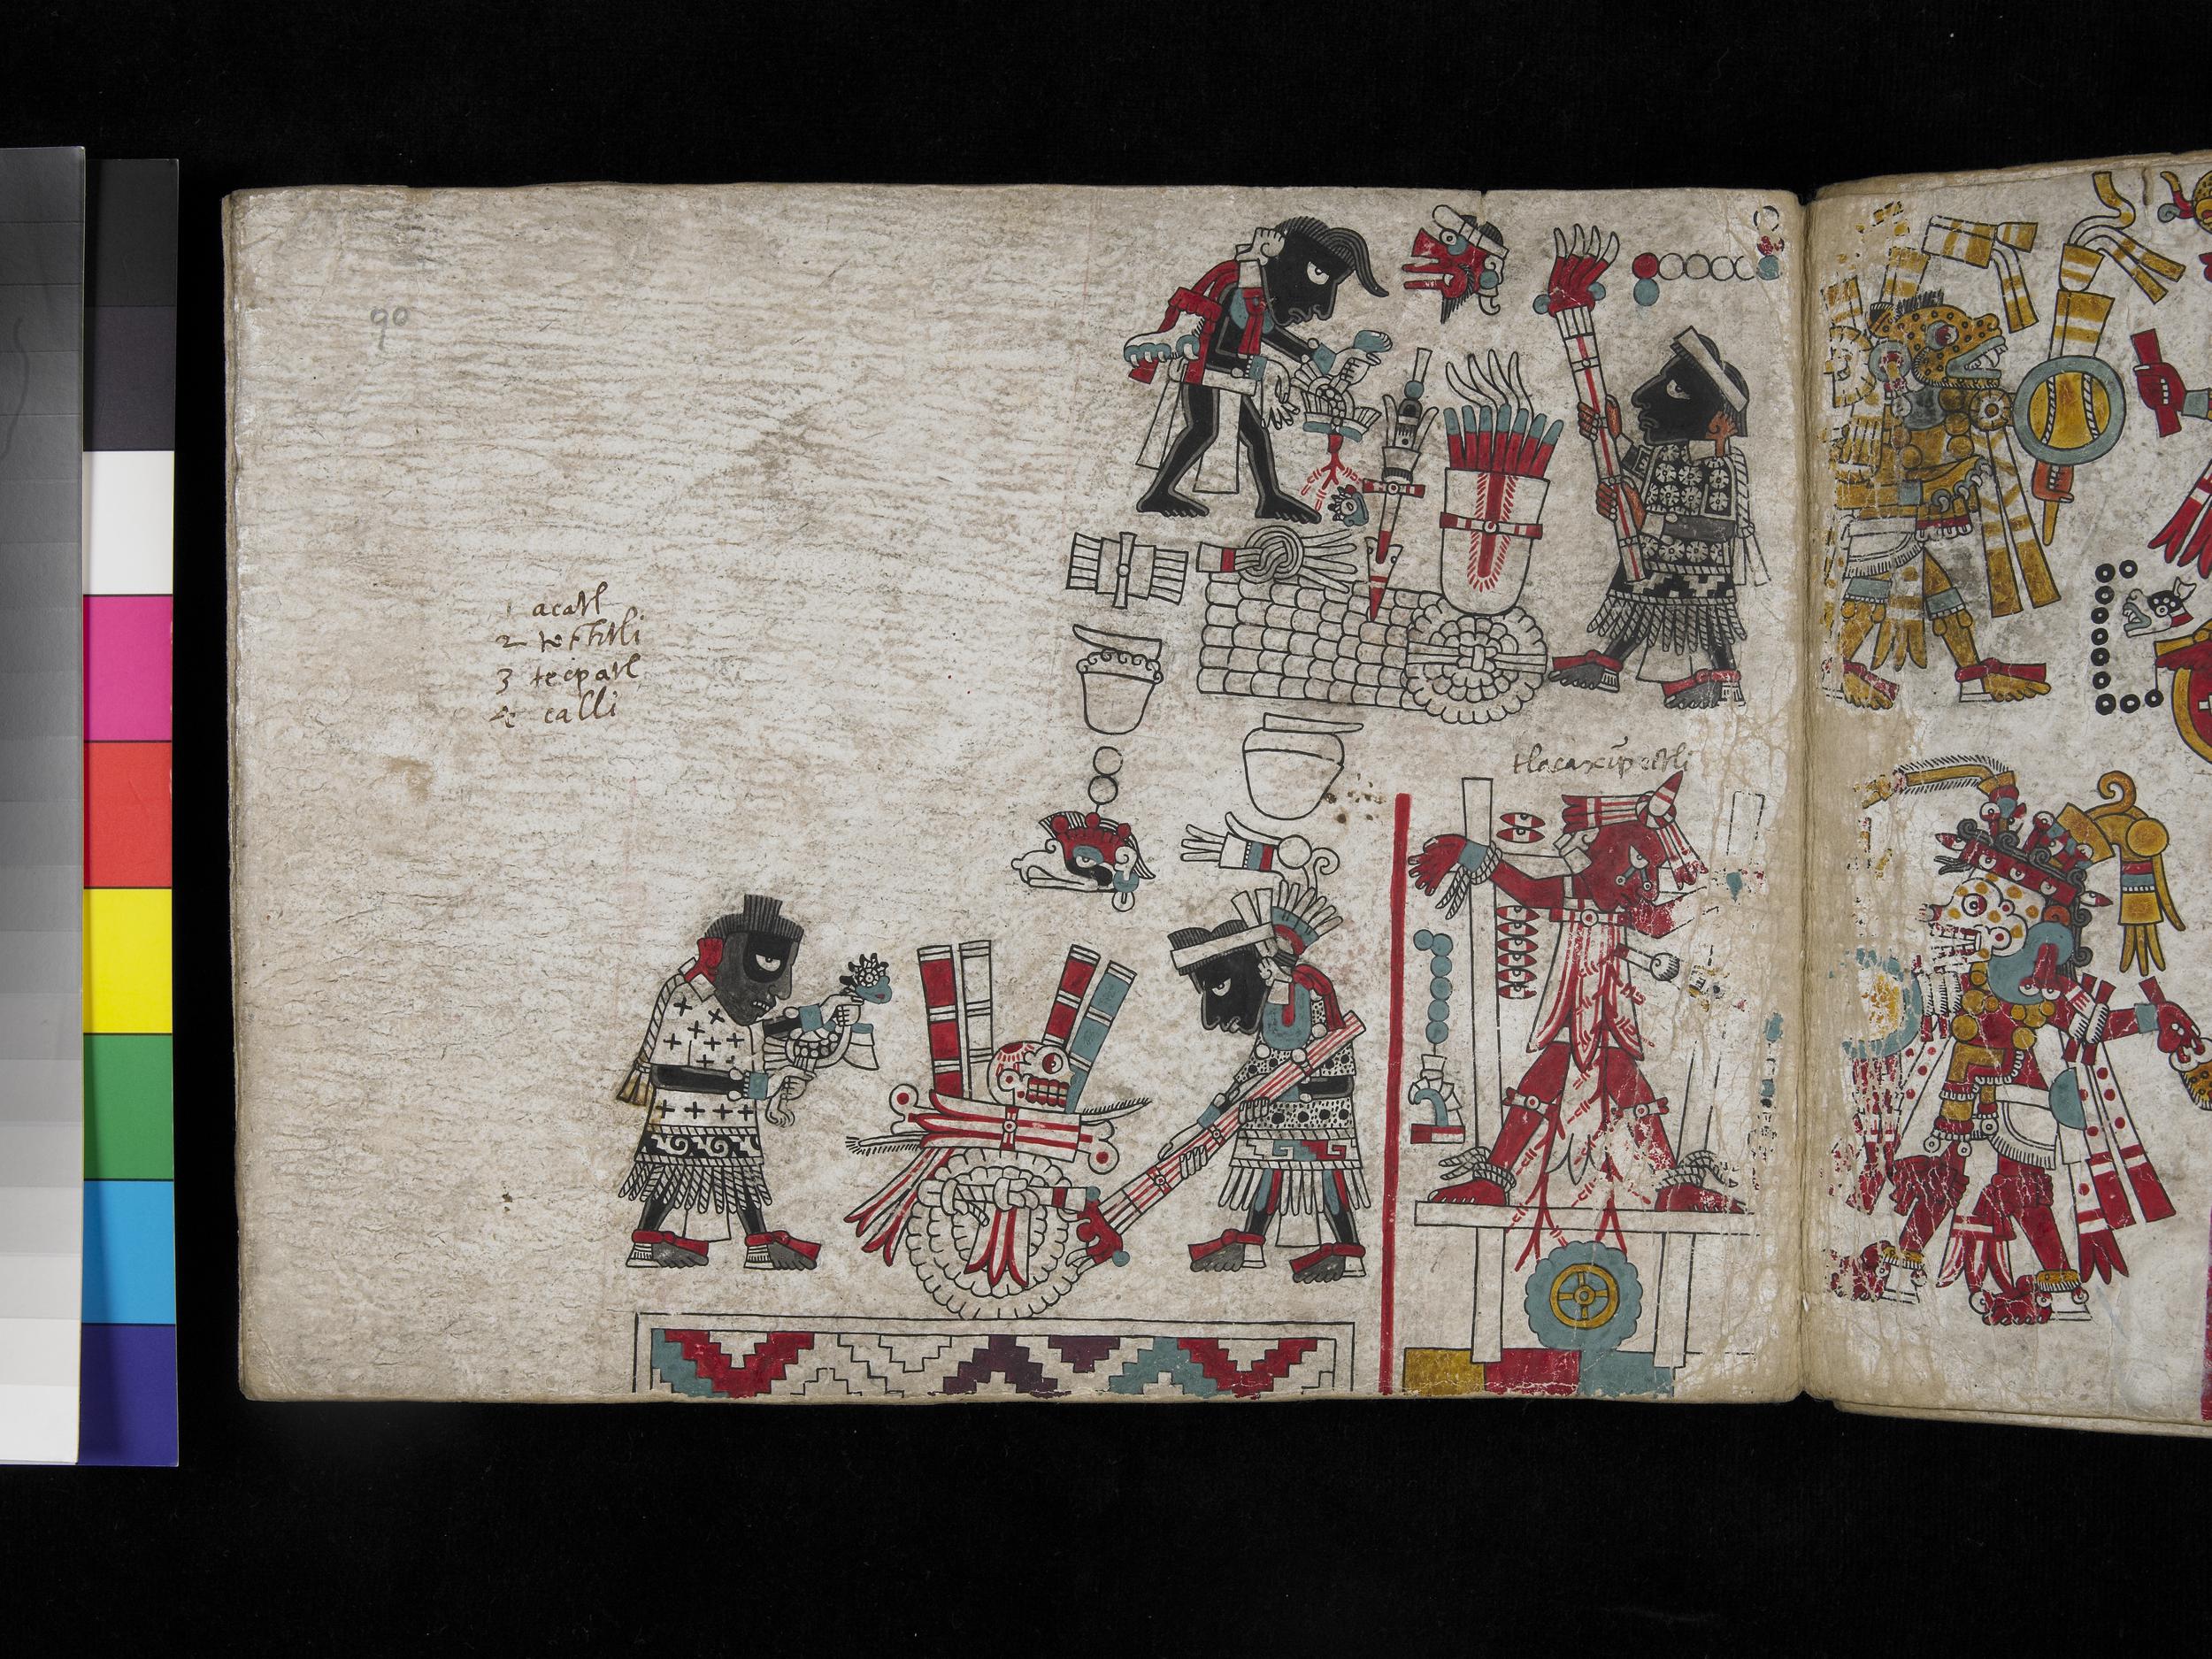 90
1 acatl
2 tochtli
3 tecpatl
4 calli
tlacaxipetli